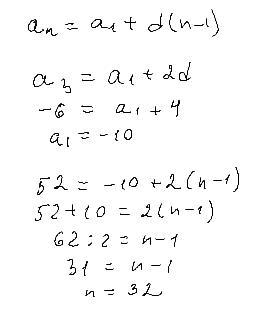 aₙ = a₁ + d(n-1)
a₃ = a₁ + 2d
-6 = a₁ + 4
a₁ = -10
52 = -10 + 2(n-1)
52+10 = 2(n-1)
62:2 = n-1
31 = n-1
n = 32